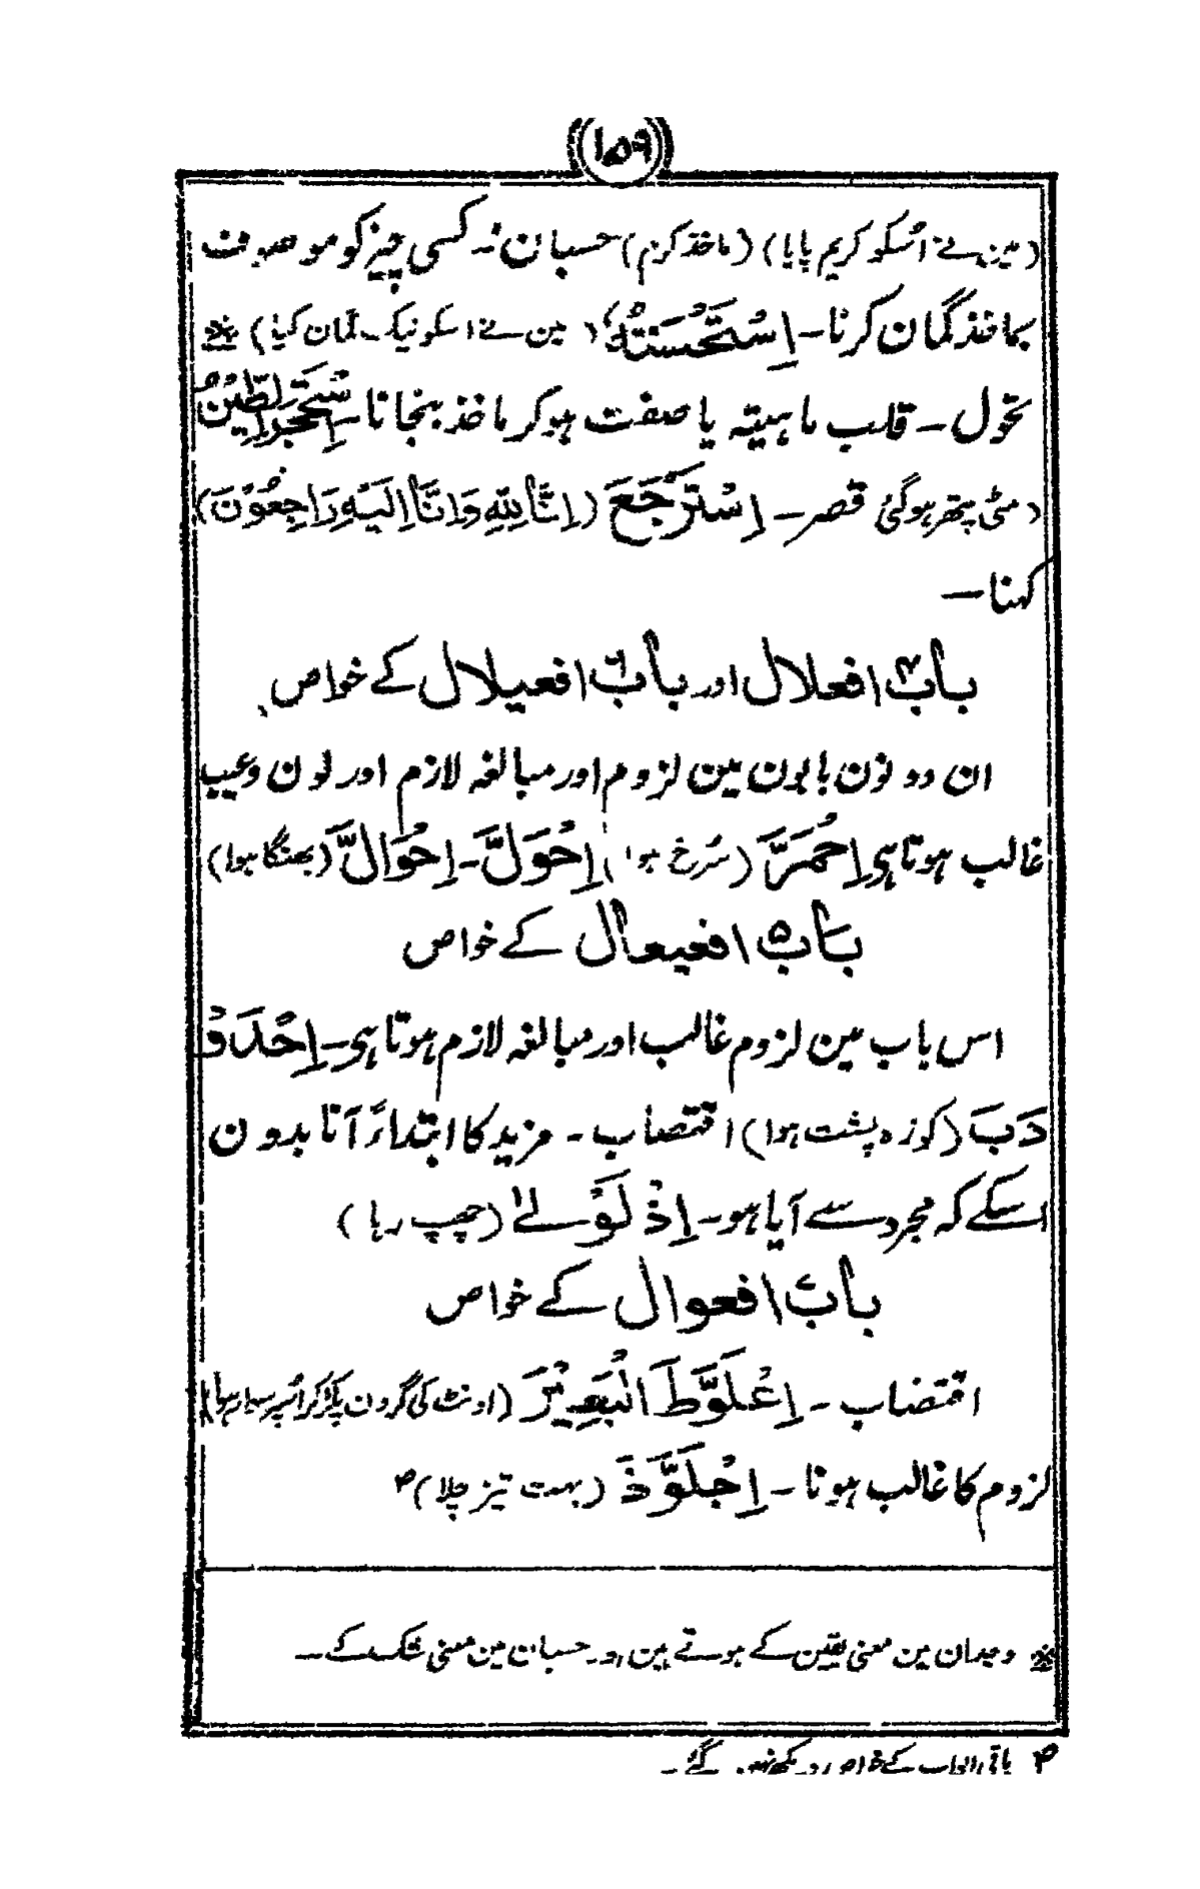 ۱۵۹
(مین نے اُسکو کریم پایا) (ماخذ کرم) حسبان نہ کسی چیز کو موصوف
بماخذ گمان کرنا۔ اِسْتَحْسَنْتُهٗ (مین نے اسکو نیک گمان کیا) ※
تحول۔ قلب ماہیتہ یا صفت ہوکر ماخذ بنجانا۔ اِسْتَحْجَرَ الطِّيْنُ
(مٹی پتھر ہوگئی قصر۔ اِسْتَرْجَعَ (اِنَّا لِلّٰهِ وَاِنَّا اِلَيْهِ رَاجِعُوْنَ)
کہنا۔
باب۴ افعلال اور باب۶ افعیلال کے خواص
ان دونون بابون مین لزوم اور مبالغہ لازم اور لون وعیب
غالب ہوتا ہی اِحْمَرَّ (سُرخ ہوا) اِحْوَلَّ۔ اِحْوَالَّ (بھنگا ہوا)
باب۵ افعیعال کے خواص
اس باب مین لزوم غالب اور مبالغہ لازم ہوتا ہی۔ اِحْدَوْ
دَبَ (کوزہ پشت ہوا) اقتضاب۔ مزید کا ابتداءً آنا بدون
اسکے کہ مجرد سے آیا ہو۔ اِذْلَوْلٰے (چھپ رہا)
باب۷ افعوال کے خواص
اقتضاب۔ اِعْلَوَّطَ الْبَعِيْرَ (اونٹ کی گردن پکڑکر اُسپر سوار ہوا)
لزوم کا غالب ہونا۔ اِجْلَوَّذَ (بہت تیز چلا) ۴
※ وجدان مین معنی یقین کے ہوتے ہین اور حسبان مین معنی شک کے۔
۴ باقی ابواب کے خواص گئے۔